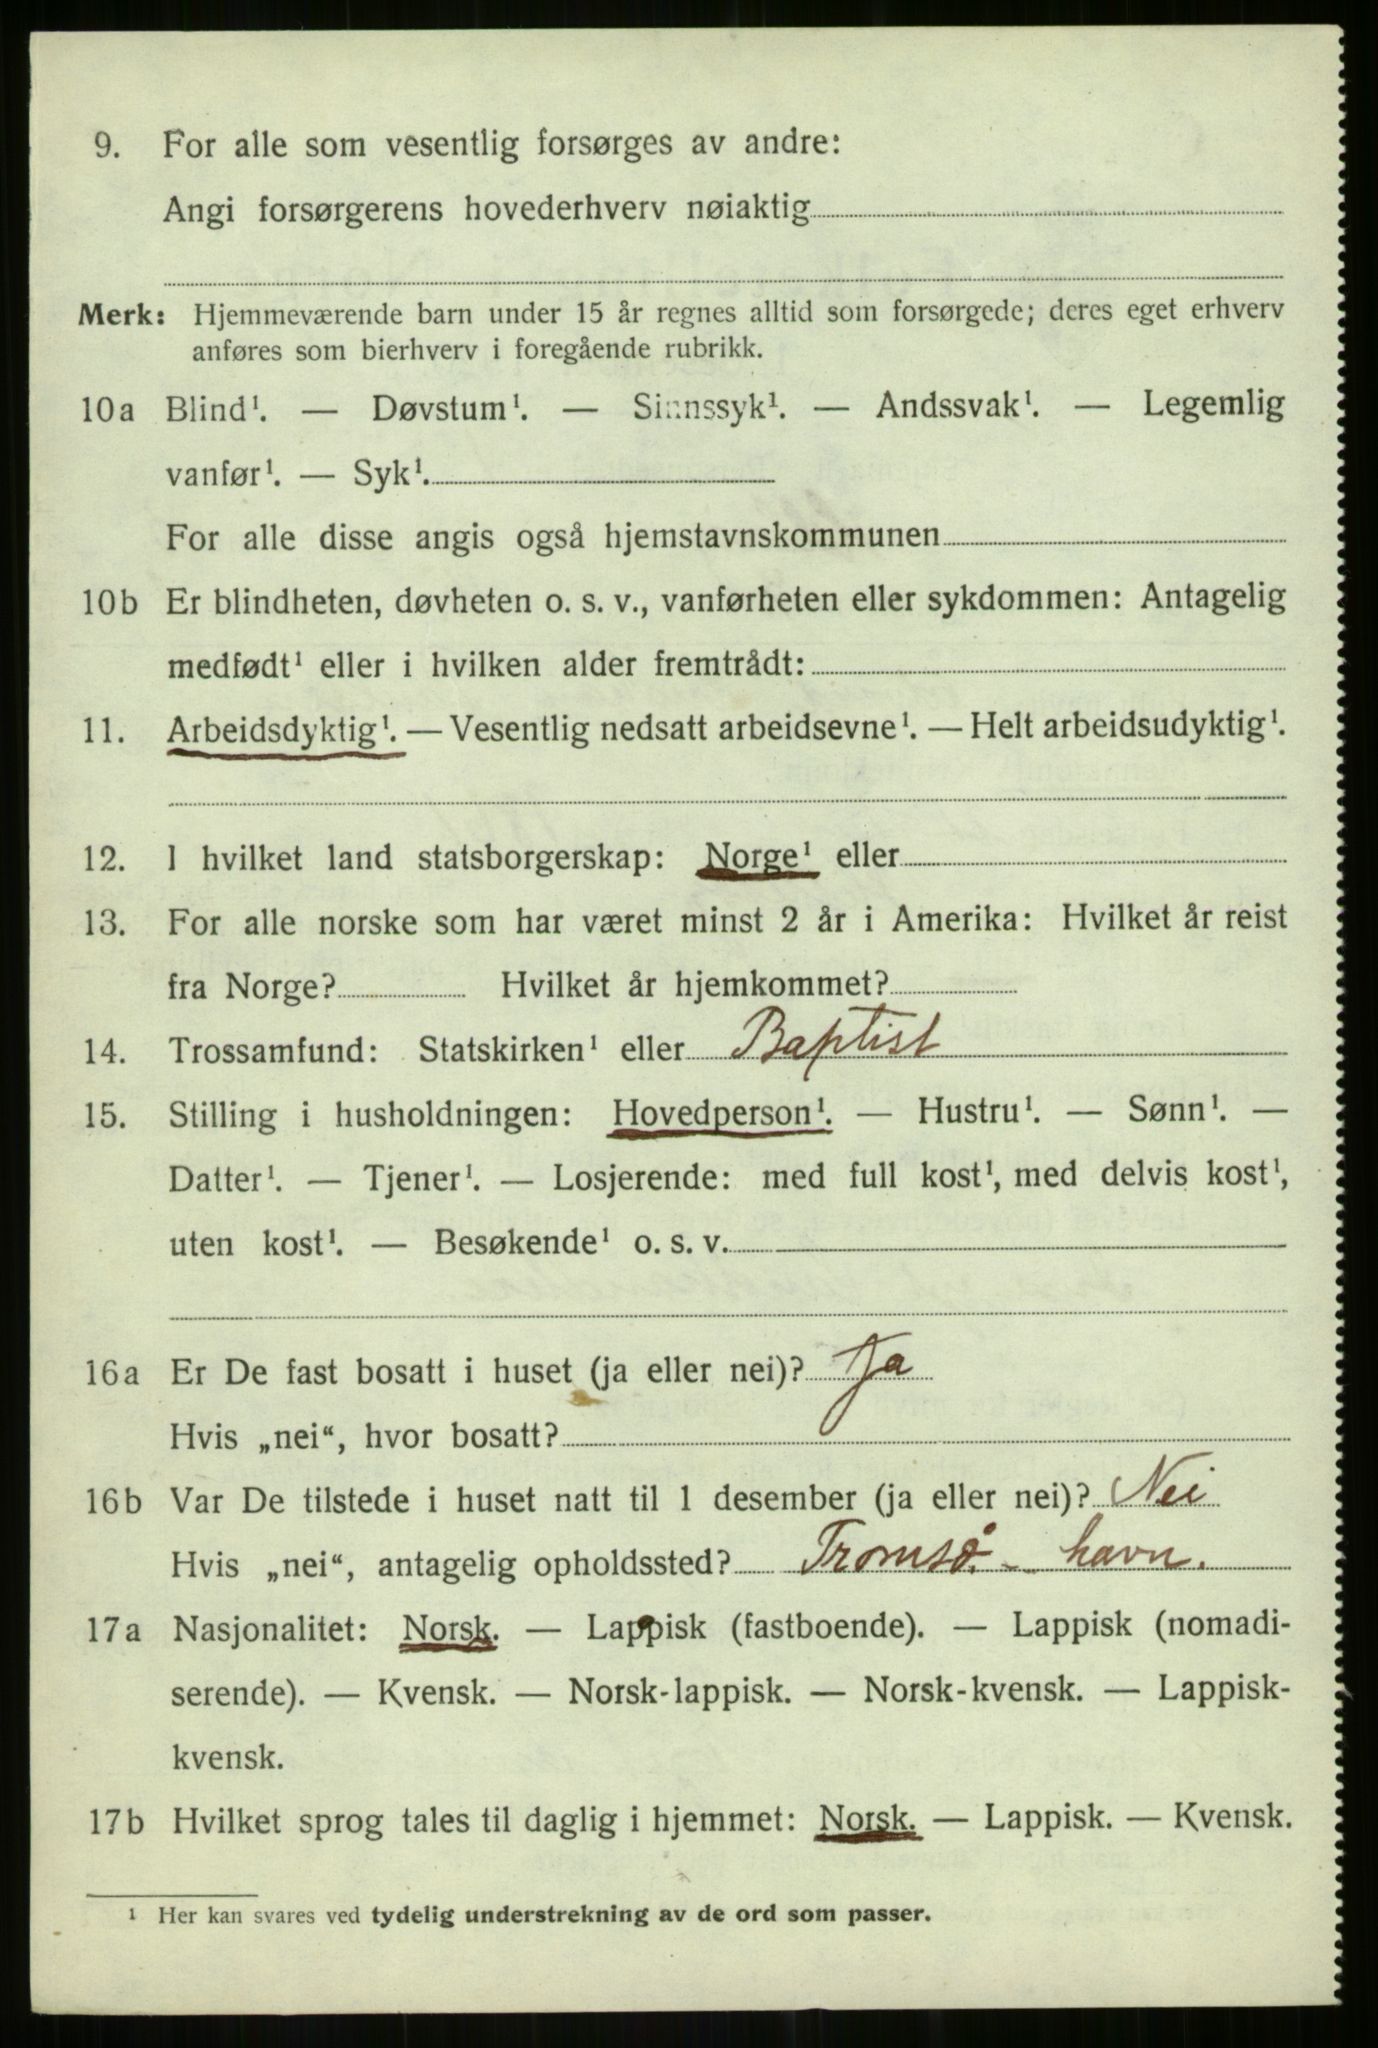 9. For alle som vesentlig forsørges av andre:
Angi forsørgerens hovederhverv nøiaktig
Merk: Hjemmeværende barn under 15 år regnes alltid som forsørgede; deres eget erhverv
anføres som bierhverv i foregående rubrikk.
10a Blind¹. — Døvstum¹. — Sinnssyk¹. — Andssvak¹. — Legemlig
vanfør¹. — Syk¹.
For alle disse angis også hjemstavnskommunen
10b Er blindheten, døvheten o. s. v., vanførheten eller sykdommen: Antagelig
medfødt¹ eller i hvilken alder fremtrådt:
11. Arbeidsdyktig¹. — Vesentlig nedsatt arbeidsevne¹. — Helt arbeidsudyktig¹.
12. I hvilket land statsborgerskap: Norge¹ eller
13. For alle norske som har været minst 2 år i Amerika: Hvilket år reist
fra Norge? Hvilket år hjemkommet?
14. Trossamfund: Statskirken¹ eller Baptist
15. Stilling i husholdningen: Hovedperson¹. — Hustru¹. — Sønn¹. —
Datter¹. — Tjener¹. — Losjerende: med full kost¹, med delvis kost¹,
uten kost¹. — Besøkende¹ o. s. v.
16a Er De fast bosatt i huset (ja eller nei)? Ja
Hvis „nei“, hvor bosatt?
16b Var De tilstede i huset natt til 1 desember (ja eller nei)? Nei
Hvis „nei“, antagelig opholdssted? Tromsø - havn.
17a Nasjonalitet: Norsk. — Lappisk (fastboende). — Lappisk (nomadi-
serende). — Kvensk. — Norsk-lappisk. — Norsk-kvensk. — Lappisk-
kvensk.
17b Hvilket sprog tales til daglig i hjemmet: Norsk. — Lappisk. — Kvensk.
¹ Her kan svares ved tydelig understrekning av de ord som passer.